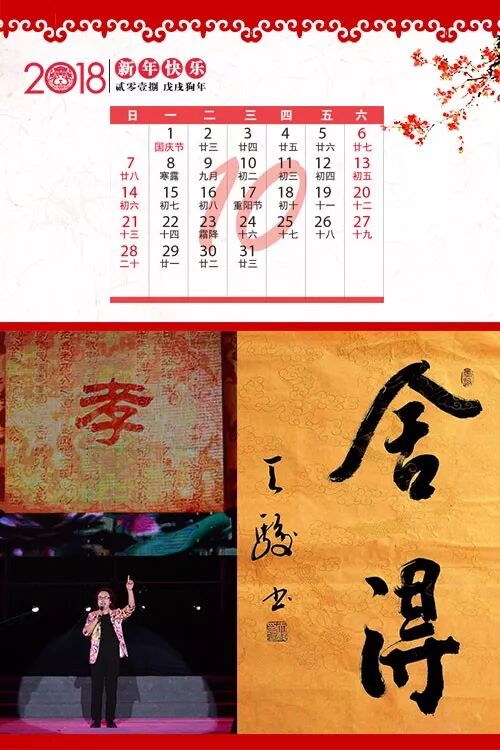 2018 新年快乐
贰零壹捌 戊戌狗年
日 一 二 三 四 五 六
1 2 3 4 5 6
国庆节 廿三 廿四 廿五 廿六 廿七
7 8 9 10 11 12 13
廿八 寒露 九月 初二 初三 初四 初五
14 15 16 17 18 19 20
初六 初七 初八 重阳节 初十 十一 十二
21 22 23 24 25 26 27
十三 十四 霜降 十六 十七 十八 十九
28 29 30 31
二十 廿一 廿二 廿三
10
孝
舍得
王駿书